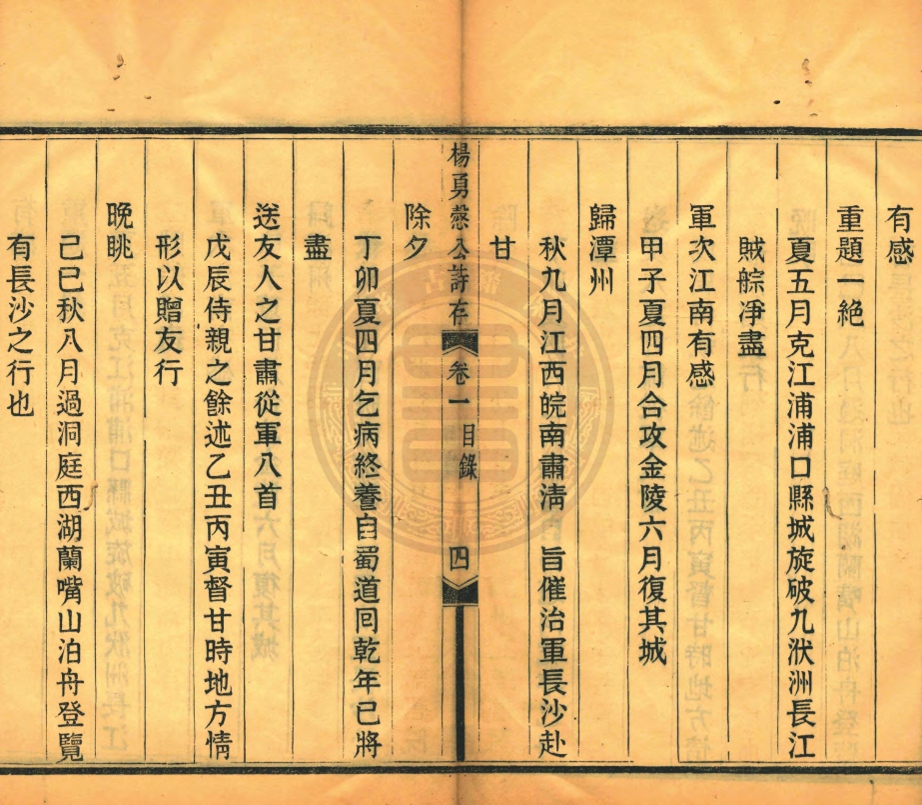 有感
重題一絶
夏五月克江浦浦口縣城旋破九洑洲長江
賊艅淨盡
軍次江南有感
甲子夏四月合攻金陵六月復其城
歸潭州
秋九月江西皖南肅淸 旨催治軍長沙赴
甘
楊勇愨公詩存 卷一 目錄 四
除夕
丁卯夏四月乞病終養自蜀道囘乾年已將
盡
送友人之甘肅從軍八首
戊辰侍親之餘述乙丑丙寅督甘時地方情
形以贈友行
晚眺
己巳秋八月過洞庭西湖蘭嘴山泊舟登覽
有長沙之行也